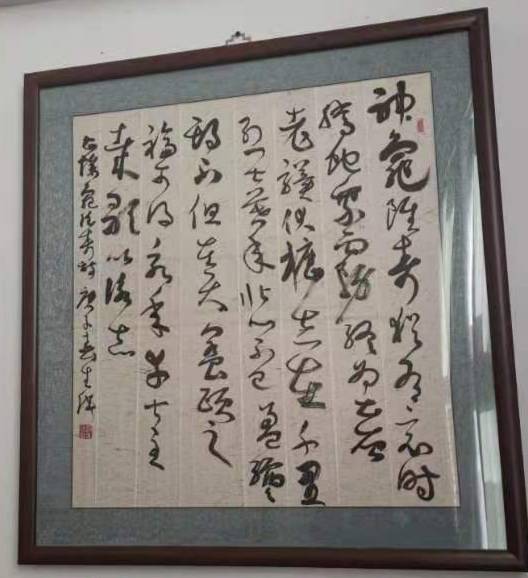 神龟雖寿猶有竟时
腾蛇乘雾终为土灰
老骥伏枥志在千里
烈士暮年壮心不已盈缩
期不但在天養怡之
福可得永年幸甚至
哉歌以詠志
龟虽寿诗 庚子春生